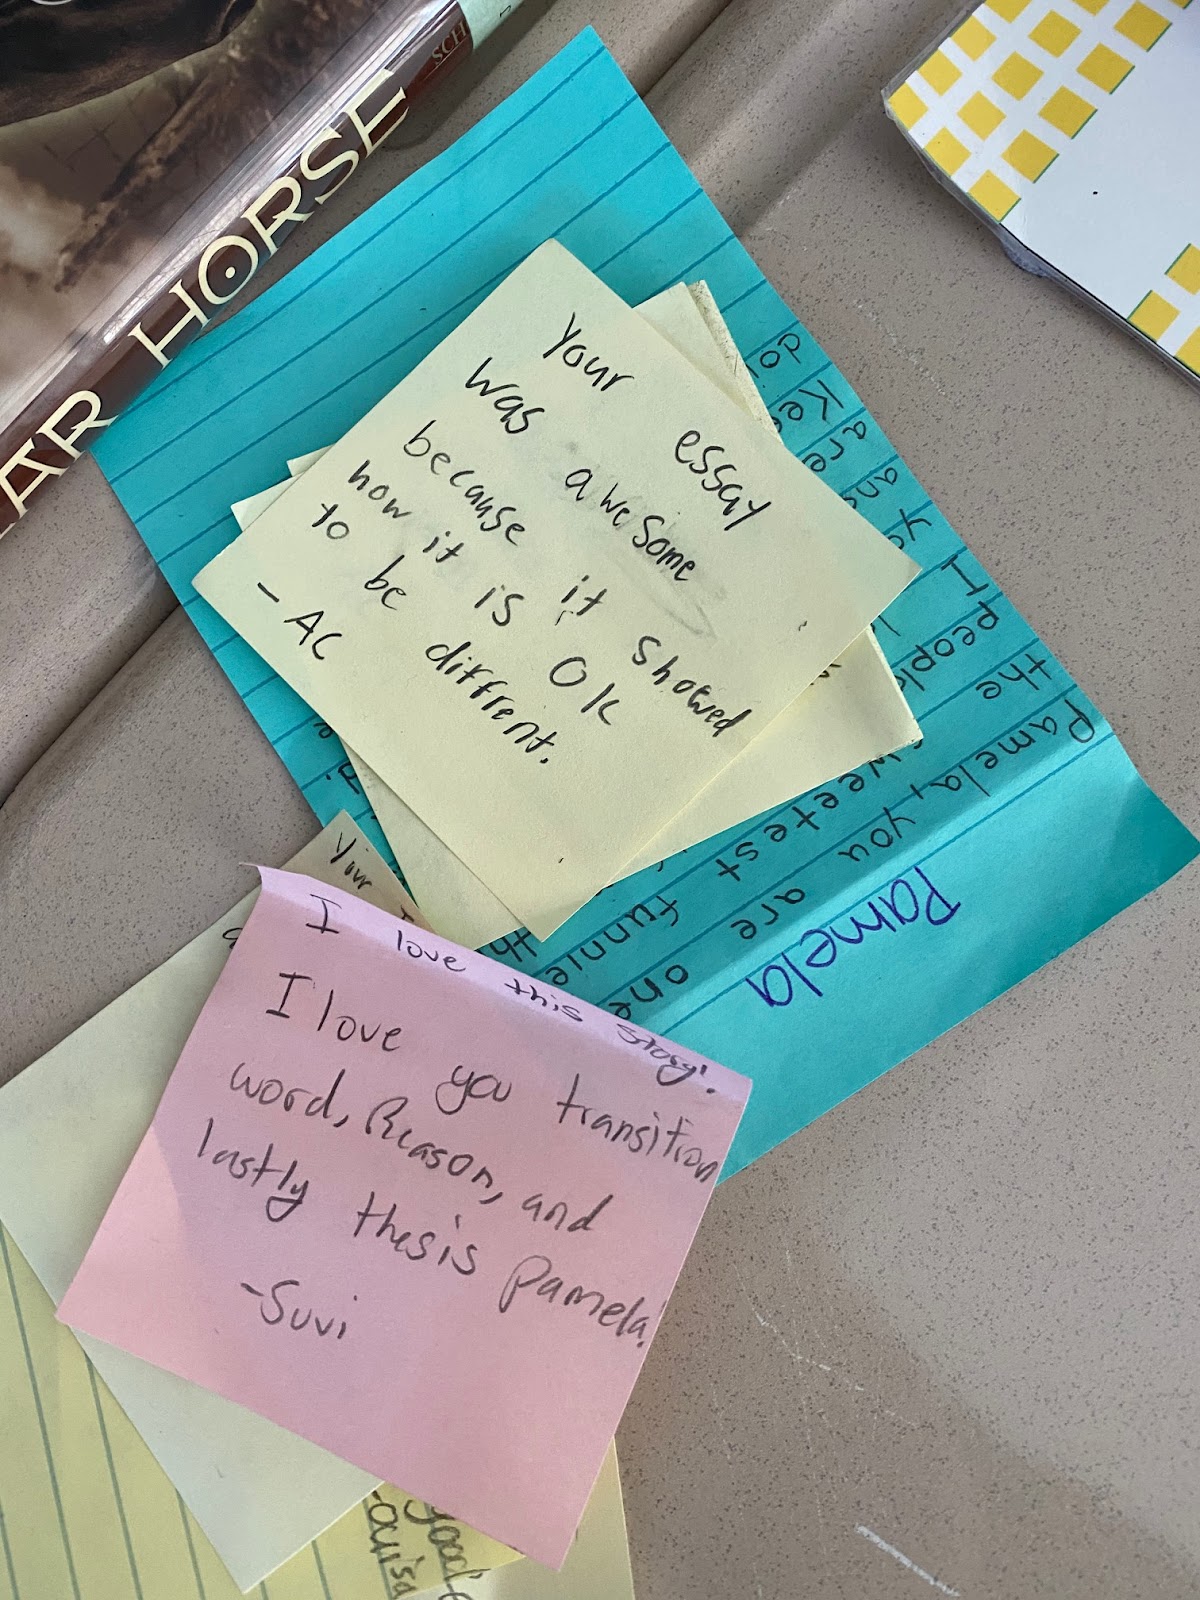 AR HORSE
SCH
Your essay
was awesome
because it showed
how it is Ok
to be diffrent.
-AC
Pamela
Pamela, you are one
the sweetest funnie
I
do
are
Your
I love this story!.
I love you transition
word, Reason, and
lastly thesis Pamela!
-Suvi
good